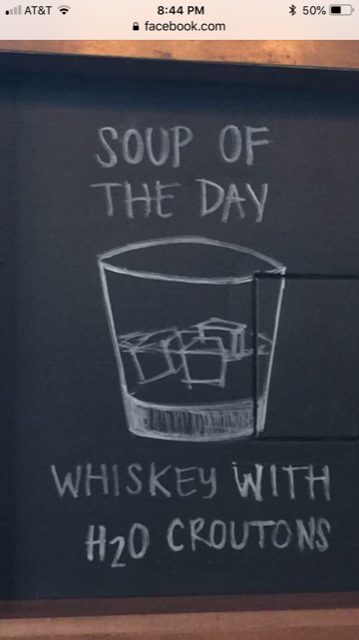 AT&T 8:44 PM 50%
facebook.com
SOUP OF
THE DAY
WHISKEY WITH
H2O CROUTONS